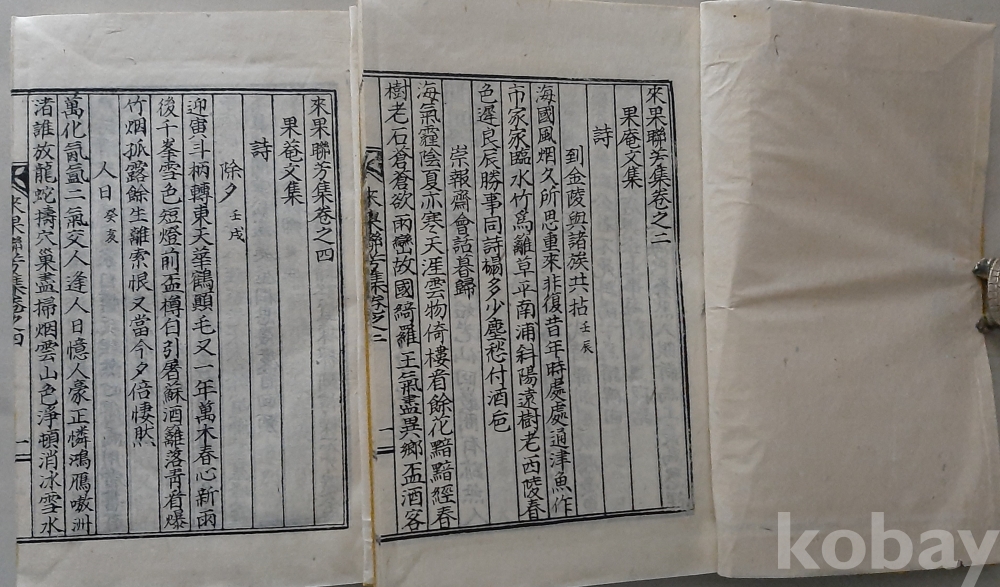 來果聯芳集卷之二
果庵文集
詩
到金陵與諸族共拈 壬辰
海國風烟久所思重來非復昔年時處處通津魚作
市家家臨水竹爲籬草平南浦斜陽遠樹老西陵春
色遲良辰勝事同詩榻多少塵愁付酒巵
崇報齋會話暮歸
海氣霾陰夏亦寒天涯雲物倚樓看餘花黯黯經春
樹老石蒼蒼欲雨巒故國綺羅王氣盡異鄉盃酒客
來果聯芳集卷之二
一
來果聯芳集卷之四
果菴文集
詩
除夕 壬戌
迎寅斗柄轉東天華鶴顚毛又一年萬木春心新雨
後千峯雪色短燈前盃樽白引屠蘇酒籬落靑看爆
竹烟孤露餘生離索恨又當今夕倍悽然
人日 癸亥
萬化氤氳二氣交人逢人日憶人豪正憐鴻鴈嗷洲
渚誰放龍蛇擣穴巢盡掃烟雲山色淨頓消冰雪水
來果聯芳集卷之四
一
kobay